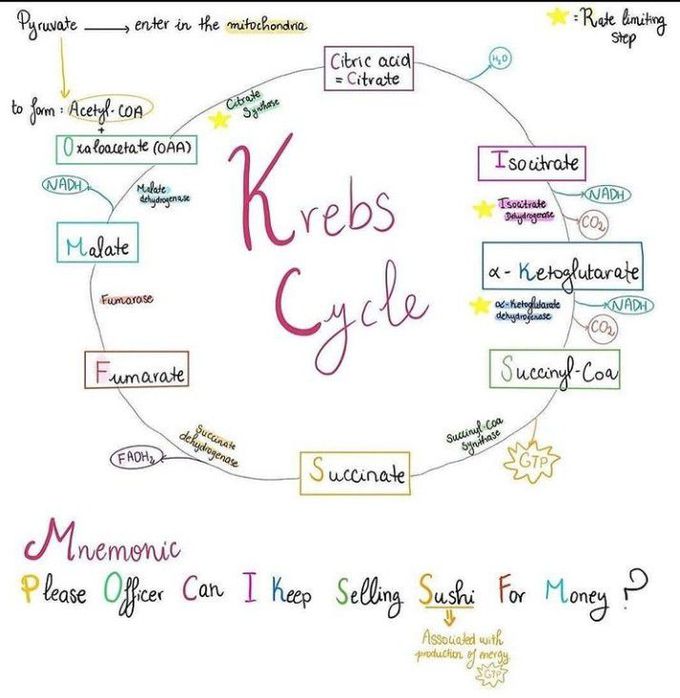 Pyruvate → enter in the mitochondria
★ = Rate limiting
step
to form : Acetyl-COA
+
Oxaloacetate (OAA)
Citrate
Synthase
Citric acid
= Citrate
H₂O
Isocitrate
Isocitrate
Dehydrogenase
NADH
CO₂
α - Ketoglutarate
α-Ketoglutarate
dehydrogenase
NADH
CO₂
Succinyl-Coa
Succinyl-Coa
Synthase
GTP
Succinate
Succinate
dehydrogenase
FADH₂
Fumarate
Fumarase
Malate
Malate
dehydrogenase
NADH
Krebs
Cycle
Mnemonic
Please Officer Can I Keep Selling Sushi For Money ?
Associated with
production of energy
GTP